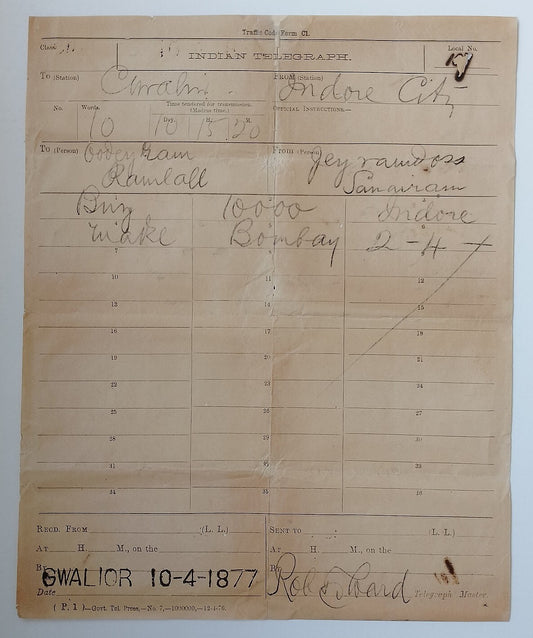 Traffic Code Form C1.
Class
INDIAN TELEGRAPH.
Local No.
To (Station)
FROM (Station)
Indore City
No.
Words.
Time tendered for transmission.
(Madras time.)
OFFICIAL INSTRUCTIONS.—
Day.
H.
M.
10
10
15
20
To (Person)
Oodey Ram
Ramlall
From (Person)
Jeyramdoss
Buy 10000 Indore
Make Bombay 2-4
7
10
11
12
13
14
15
16
17
18
19
20
21
22
23
24
25
26
27
28
29
30
31
32
33
34
35
36
RECD. FROM (L. L.)
SENT TO (L. L.)
AT H. M., on the
AT H. M., on the
By
By
GWALIOR 10-4-1877
Date
Telegraph Master.
( P. 1 )—Govt. Tel. Press,—No. 7,—1000000,—12-4-76.